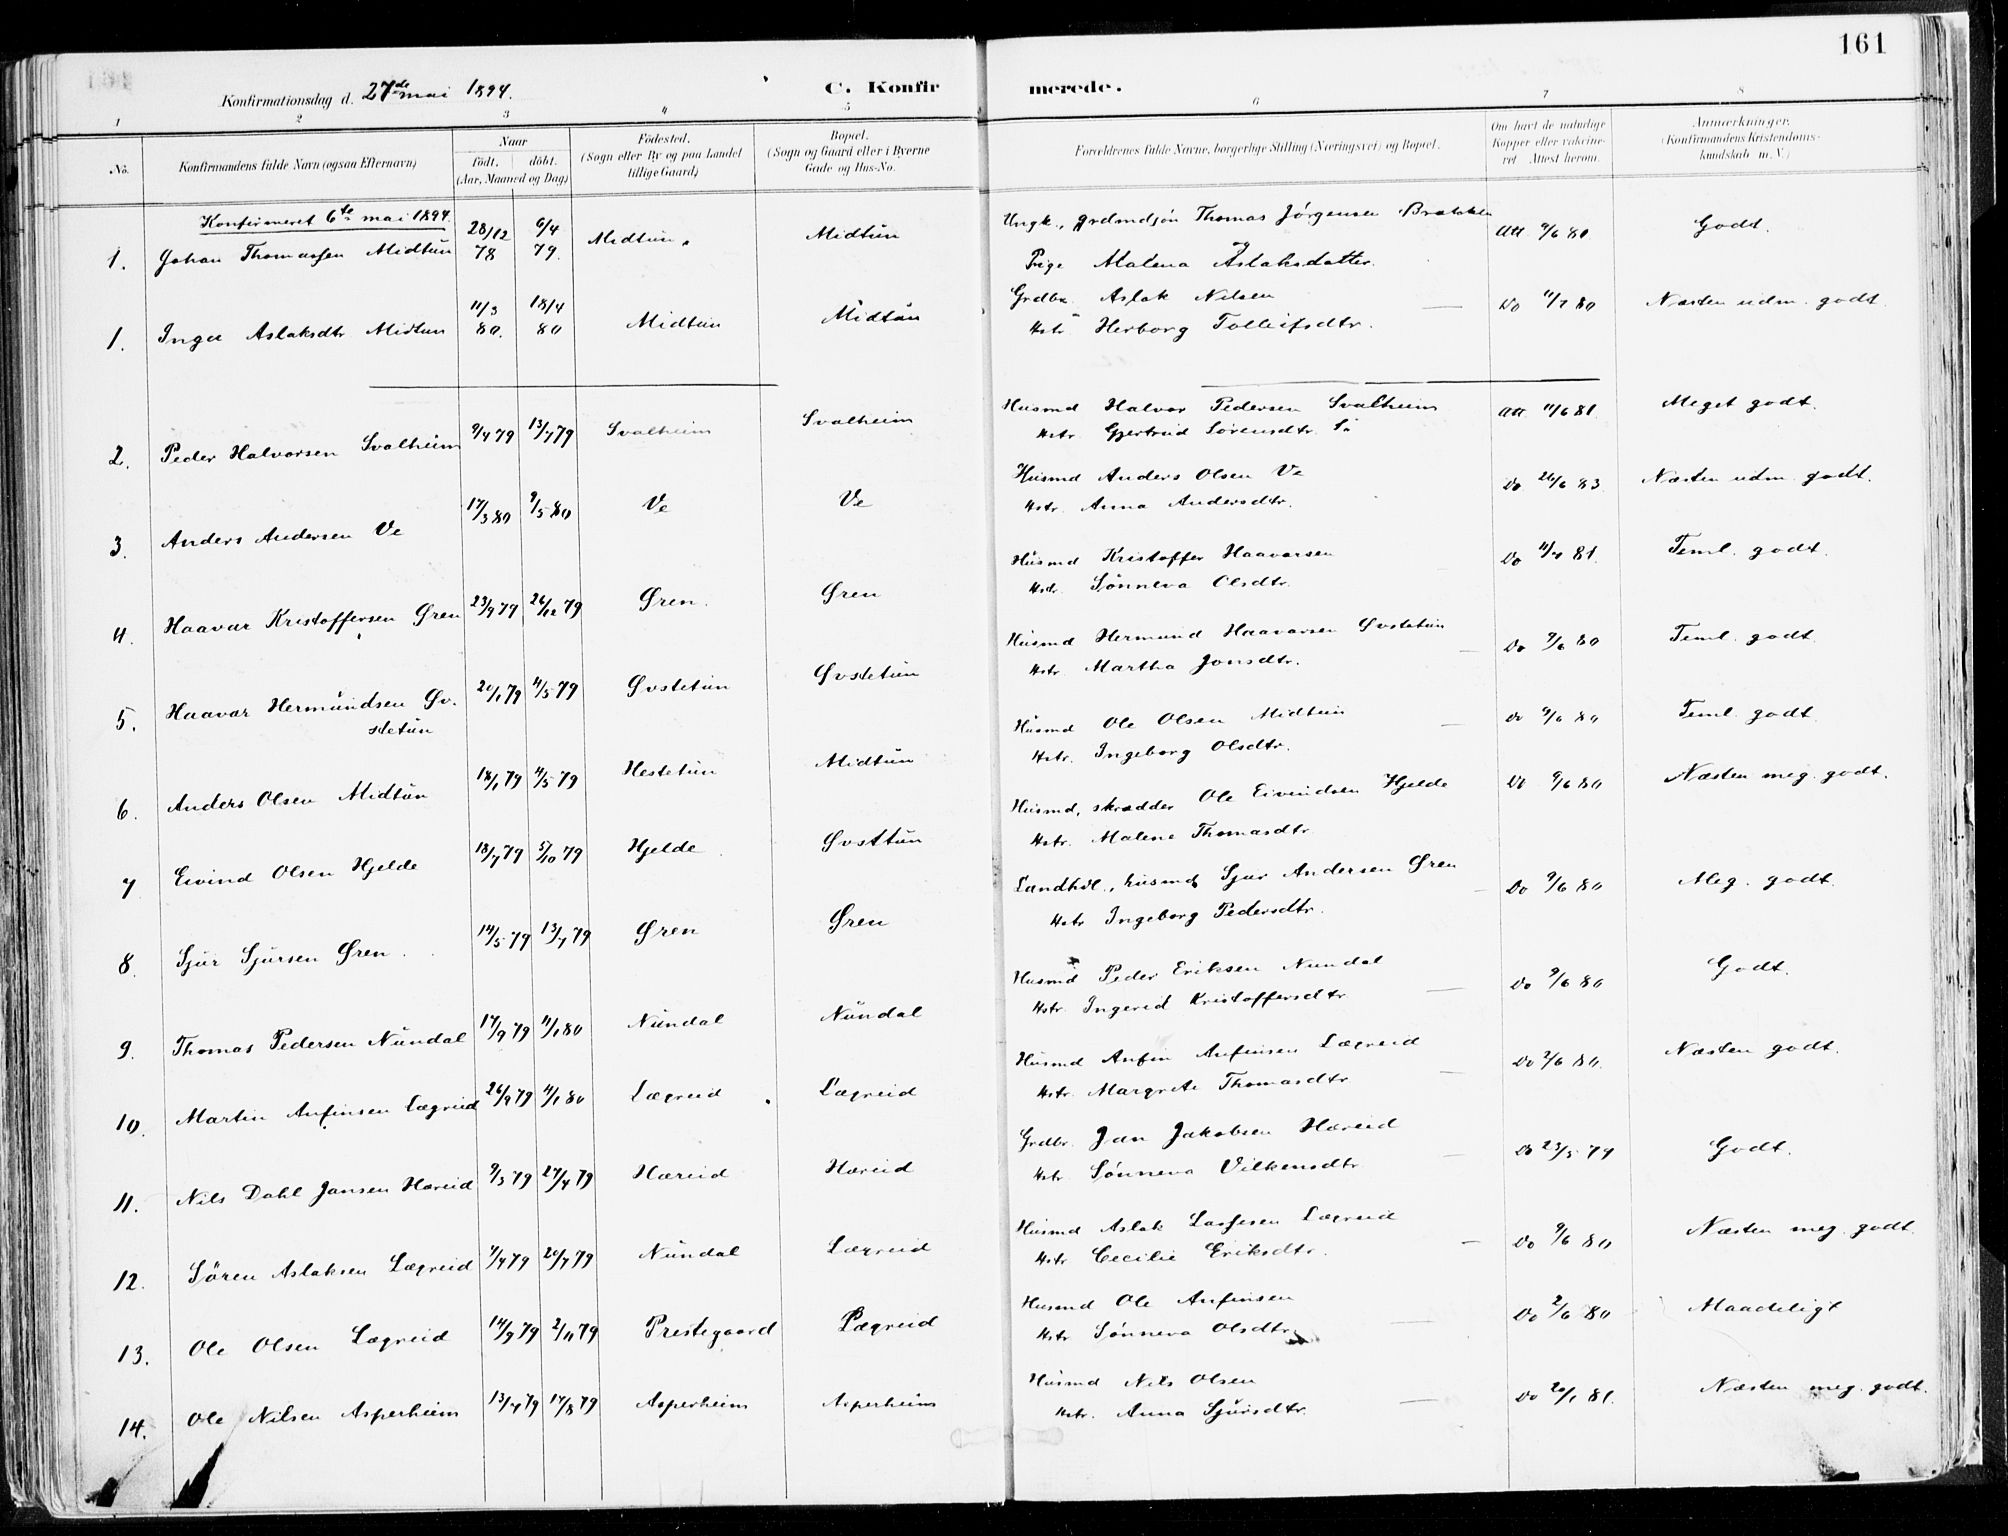 161
Konfirmationsdag d. 27de mai 1894.
C. Konfirmerede.
1 2 3 4 5 6 7 8
No. Konfirmandens fulde Navn (ogsaa Efternavn) Naar födt. döbt. (Aar, Maaned og Dag) Födested. (Sogn eller By og paa Landet tillige Gaard) Bopæl. (Sogn og Gaard eller i Byerne Gade og Hus-No. Forældrenes fulde Navne, borgerlige Stilling (Næringsvei) og Bopæl. Om havt de naturlige Kopper eller vakcineret Attest herom. Anmærkninger. (Konfirmandens Kristendomskundskab m. V.)
Konfirmeret 6te mai 1894.
1. Johan Thomassen Midtun 28/12 78 6/4 79. Midtun. Midtun Ungk., grdmdsön Thomas Jørgensen Brækken og
Pige Malena Aslaksdatter. Att 9/6 80 Godt.
1. Inga Aslaksdtr Midtun 11/3 80. 18/4 80 Midtun Midtun Grdbr. Aslak Nilsen
Hstr Herborg Tolleifsdtr. Do 11/7 80 Næsten udm. godt.
2. Peder Halvorsen Svalheim 9/4 79 13/7 79 Svalheim Svalheim Husmd Halvor Pedersen Svalheim
Hstr. Gjertrud Sörensdtr. Att 11/6 81. Meget godt.
3. Anders Andersen Ve 17/3 80 9/5 80 Ve Ve Husmd Anders Olsen Ve
Hstr. Anna Andersdtr. Do 26/6 83 Næsten udm. godt.
4. Haavar Kristoffersen Øren 23/9 79 26/12 79 Øren. Øren Husmd Kristoffer Haavarsen
Hstr. Sönneva Olsdtr. Do 11/4 81. Teml. godt.
5. Haavar Hermundsen Øvstetun 20/1 79 4/5 79 Øvstetun Øvstetun Husmd Hermund Haavarsen Øvstetun
Hstr. Martha Jonsdtr. Do 9/6 80 Teml. godt.
6. Anders Olsen Midtun 18/1 79 4/5 79 Hestetun Midtun Husmd Ole Olsen Midtun
Hstr. Ingeborg Olsdtr. Do 9/6 80 Teml. godt.
7 Eivind Olsen Hjelde 18/7 79 5/10 79 Hjelde Øvsttun Husmd, skrædder Ole Eivindsen Hjelde
Hstr. Malene Thomasdtr. Do 9/6 80 Næsten meg. godt.
8. Sjur Sjursen Øren. 14/5 79 13/7 79 Øren Øren Landhdl., husmd Sjur Andersen Øren
Hstr Ingeborg Pedersdtr. Do 9/6 80 Meg. godt.
9. Thomas Pedersen Nundal 17/9 79 11/1 80 Nundal Nundal Husmd Peder Eriksen Nundal
Hstr. Ingerid Kristoffersdtr Do 9/6 80 Godt.
10. Martin Anfinsen Lægreid 26/9 79 4/1 80 Lægreid Lægreid Husmd Anfin Anfinsen Lægreid
Hstr. Margrete Thomasdtr Do 2/6 80. Næsten godt.
11. Nils Dahl Jansen Hæreid 9/3 79 27/4 79 Hæreid Hæreid Grdbr. Jan Jakobsen Hæreid
Hstr. Sönneva Vilkensdtr Do 23/5 79 Godt.
12. Sören Aslaksen Lægreid 4/4 79 20/7 79 Nundal Lægreid Husmd Aslak Lassesen Lægreid
Hstr Cecilie Eriksdtr. Do 9/6 80 Næsten meg. godt.
13. Ole Olsen Lægreid 14/9 79 2/11 79 Prestegaard Lægreid Husmd Ole Anfinsen
Hstr. Sönneva Olsdtr. Do 2/6 80 Maadeligt
14. Ole Nilsen Asperheim 13/4 79 17/8 79 Asperheim Asperheim Husmd Nils Olsen
Hstr. Anna Sjursdtr. Do 20/1 81. Næsten meg. godt.